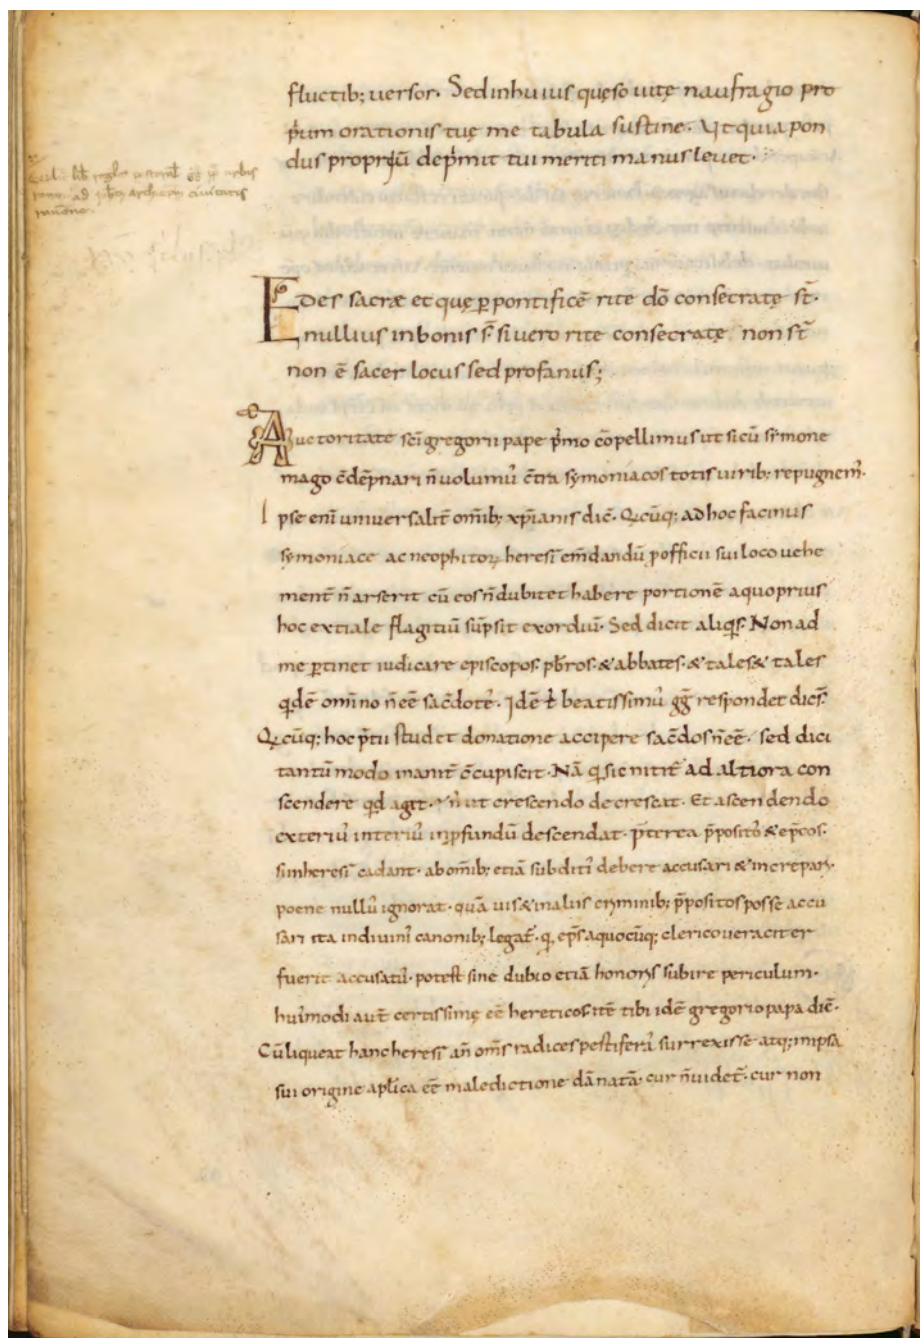 fluctib; uersor. Sed in huius quęso uitę naufragio pro
p̄um orationis tuę me tabula sustine. Ut quia pon
dus propriū dep̄mit tui meriti manus leuet.
ad
ciuitatis
Edes sacræ et quę ꝑ pontificē rite dō consecratę st̄.
nullius in bonis s̄t si uero rite consecratę non st̄
non ē sacer locus sed profanus;
Auctoritate sc̄i gregorii pape p̄mo cōpellimus ut si cū simone
mago c̄dēpnari n̄ volumꝰ c̄tra symoniacos totis uirib; repugnemꝰ.
Ipse enī uniuersalit̄ omīb; xp̄ianis dic̄. Qcūq; ad hoc facinus
symoniace ac neophitoꝝ heresī em̄dandū p officii sui loco uehe
ment̄ n̄ arserit cū eo s n̄ dubitet habere portionē a quo prius
hoc extiale flagitiū sūpsit exordiū. Sed dicit aliqs. Non ad
me ꝑtinet iudicare episcopos. pb̄ros. & abbates. & tales & tales
qdē omīno n̄ eē sac̄dotē. Idē beatissimꝰ gḡ respondet dic̄s.
Qcūq; hoc p̄tii studet donatione accipere sac̄dos n̄ eē. sed dici
tantū modo inanit̄ c̄cupiscit. Nā q sic nitit̄ ad altiora con
scendere qd agit. n̄ ut crescendo decrescat. Et ascendendo
exteriꝰ interiꝰ in pfundū descendat. p̄terea p̄positos & ep̄cos.
si in heresī cadant. ab omīb; etiā subditꝰ debere accusari & increpari.
poene nullꝰ ignorat. quā uis & in aliis criminib; p̄positos posse accu
sari ita in diuinꝰ canonib; legat̄. q ep̄s a quocūq; clerico ueraciter
fuerit accusatꝰ. potest sine dubio etiā honoris subire periculum.
huꝰmodi aut̄ certissimę eē hereticos itē tibi idē gregorio papa dic̄.
Cū liqueat hanc heresī an̄ om̄s radices pestiferā surrexisse atq; in ipsa
sui origine apl̄ica eē maledictione dānatā. cur n̄ uidet̄. cur non